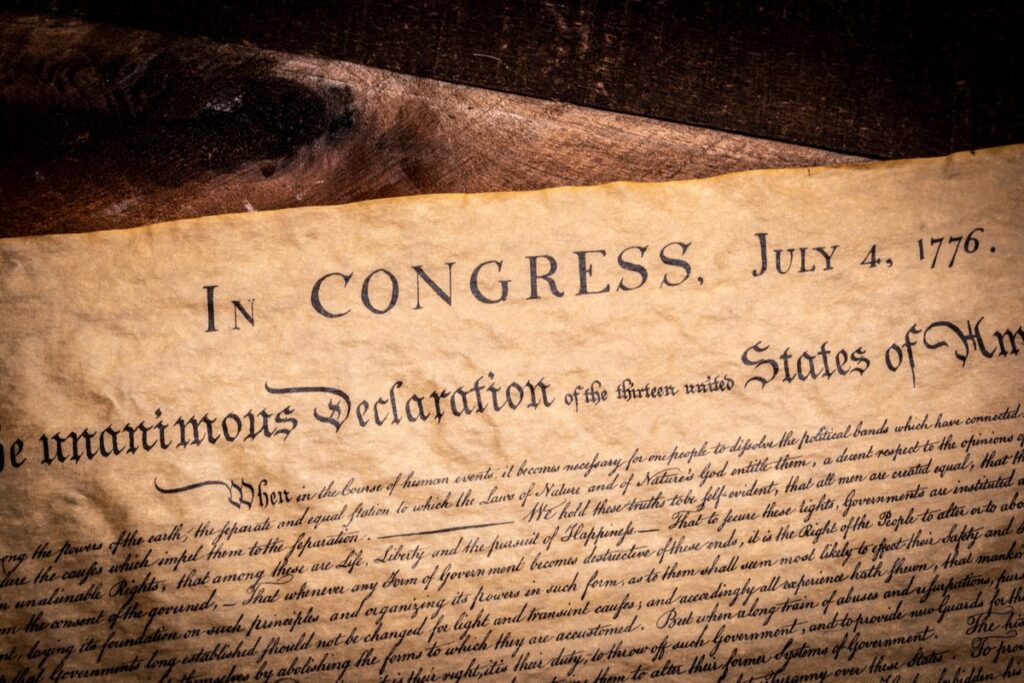 In CONGRESS, July 4, 1776.
he unanimous Declaration of the thirteen united States of Am
When in the Course of human events, it becomes necessary for one people to dissolve the political bands which have connected
ong the powers of the earth, the separate and equal station to which the Laws of Nature and of Nature's God entitle them, a decent respect to the opinions of
are the causes which impel them to the separation. We hold these truths to be self-evident, that all men are created equal, that th
n unalienable Rights, that among these are Life, Liberty and the pursuit of Happiness — That to secure these rights, Governments are instituted a
m the consent of the governed, — That whenever any Form of Government becomes destructive of these ends, it is the Right of the People to alter or to abo
nt, laying its foundation on such principles and organizing its powers in such form, as to them shall seem most likely to effect their Safety and
that Governments long established should not be changed for light and transient causes; and accordingly all experience hath shewn, that mankin
themselves by abolishing the forms to which they are accustomed. But when a long train of abuses and usurpations, purs
it is their right, it is their duty, to throw off such Government, and to provide new Guards for th
them to alter their former Systems of Government. The his
Tyranny over these States. To prov